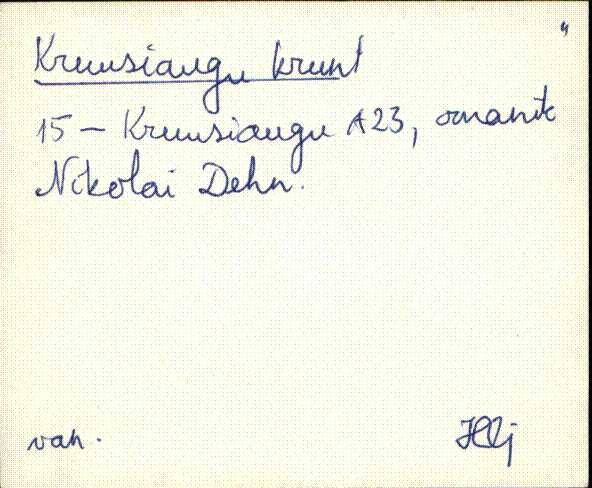 Kruusiaugu krunt
15 – Kruusiaugu A23, omanik
Nikolai Dehn.
van.
HLj